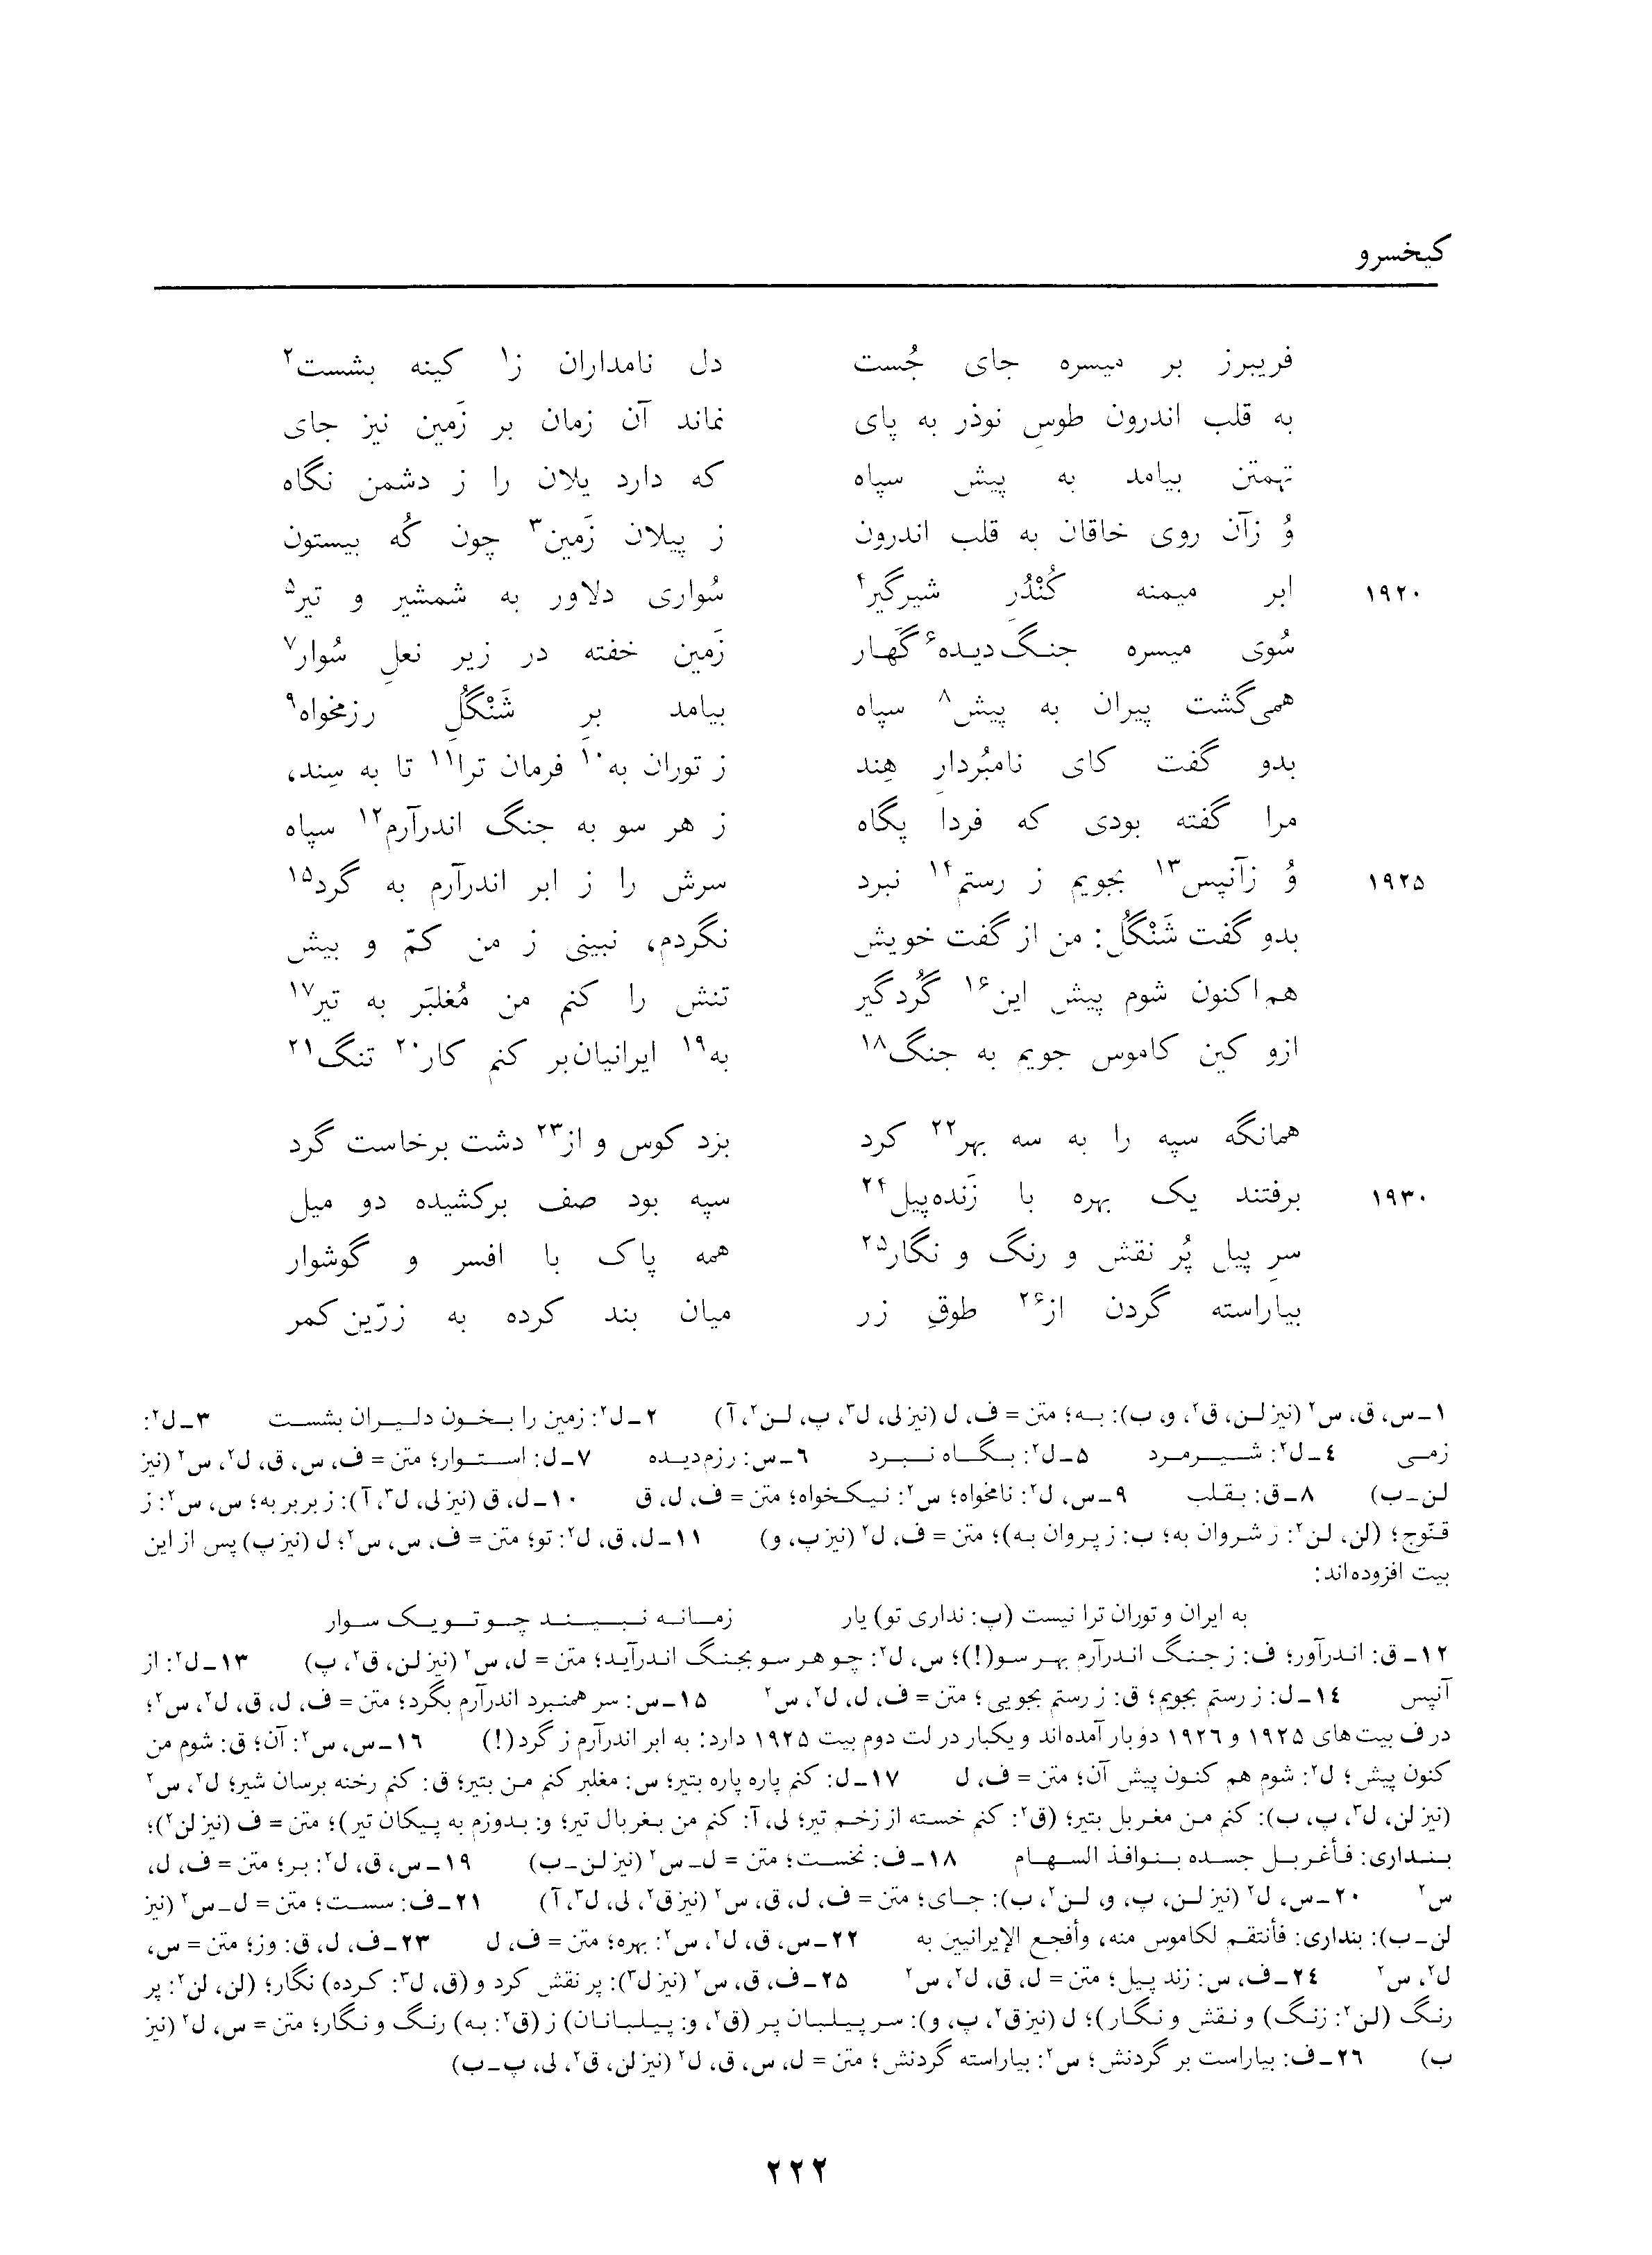 کیخسرو
فریبرز بر میسره جای جُست دل نامداران ز۱ کینه بشست۲
به قلب اندرون طوسِ نوذر به پای نماند آن زمان بر زَمین نیز جای
تهمتن بیامد به پیش سپاه که دارد یلان را ز دشمن نگاه
وُ زآن روی خاقان به قلب اندرون ز پیلان زَمین۳ چون کُه بیستون
۱۹۲۰ ابر میمنه کُنْدُرِ شیرگیر۴ سُواری دلاور به شمشیر و تیر۵
سُوی میسره جنگ‌دیده۶ گَهار زَمین خفته در زیر نعلِ سُوار۷
همی‌گشت پیران به پیش۸ سپاه بیامد برِ شَنْگُلِ رزمخواه۹
بدو گفت کای نامبُردارِ هِند ز توران به۱۰ فرمان ترا۱۱ تا به سِند،
مرا گفته بودی که فردا پگاه ز هر سو به جنگ اندرآرم۱۲ سپاه
۱۹۲۵ وُ زآنپس۱۳ بجویم ز رستم۱۴ نبرد سرش را ز ابر اندرآرم به گرد۱۵
بدو گفت شَنْگُل: من از گفت خویش نگردم، نبینی ز من کمّ و بیش
هم‌اکنون شوم پیش این۱۶ گُردگیر تنش را کنم من مُغلبَر به تیر۱۷
ازو کین کاموس جویم به جنگ۱۸ به۱۹ ایرانیان‌بر کنم کار۲۰ تنگ۲۱
همانگه سپه را به سه بهر۲۲ کرد بزد کوس و از۲۳ دشت برخاست گرد
۱۹۳۰ برفتند یک بهره با زَنده‌پیل۲۴ سپه بود صف برکشیده دو میل
سرِ پیل پُر نقش و رنگ و نگار۲۵ همه پاک با افسر و گوشوار
بیاراسته گردن از۲۶ طوقِ زر میان بند کرده به زرّین‌کمر
۱ـ س، ق، س۲ (نیز لن، ق۲، و، ب): به؛ متن = ف، ل (نیز لی، ل۳، پ، لن۲، آ) ۲ـ ل۲: زمین را بخون دلیران بشست ۳ـ ل۲:
زمی ۴ـ ل۲: شیرمرد ۵ـ ل۲: بگاه نبرد ۶ـ س: رزم‌دیده ۷ـ ل: استوار؛ متن = ف، س، ق، ل۲، س۲ (نیز
لن ـ ب) ۸ـ ق: بقلب ۹ـ س، ل۲: نامخواه؛ س۲: نیکخواه؛ متن = ف، ل، ق ۱۰ـ ل، ق (نیز لی، ل۳، آ): ز بربر به؛ س، س۲: ز
قنّوج؛ (لن، لن۲: ز شروان به؛ ب: ز پروان به)؛ متن = ف، ل۲ (نیز پ، و) ۱۱ـ ل، ق، ل۲: تو؛ متن = ف، س، س۲؛ ل (نیز پ) پس از این
بیت افزوده‌اند:
به ایران و توران ترا نیست (پ: نداری تو) یار زمانه نبیند چو تو یک سوار
۱۲ـ ق: اندرآور؛ ف: ز جنگ اندرآرم بهر سو(!)؛ س، ل۲: چو هر سو بجنگ اندرآید؛ متن = ل، س۲ (نیز لن، ق۲، پ) ۱۳ـ ل۲: از
آنپس ۱۴ـ ل: ز رستم بجویم؛ ق: ز رستم بجویی؛ متن = ف، ل، ل۲، س۲ ۱۵ـ س: سر همنبرد اندرآرم بگرد؛ متن = ف، ل، ق، ل۲، س۲؛
در ف بیت‌های ۱۹۲۵ و ۱۹۲۶ دوبار آمده‌اند و یکبار در لت دوم بیت ۱۹۲۵ دارد: به ابر اندرآرم ز گرد(!) ۱۶ـ س، س۲: آن؛ ق: شوم من
کنون پیش؛ ل۲: شوم هم کنون پیش آن؛ متن = ف، ل ۱۷ـ ل: کنم پاره پاره بتیر؛ س: مغلبر کنم من بتیر؛ ق: کنم رخنه برسان شیر؛ ل۲، س۲
(نیز لن، ل۳، پ، ب): کنم من مغربل بتیر؛ (ق۲: کنم خسته از زخم تیر؛ لی، آ: کنم من بغربال تیر؛ و: بدوزم به پیکان تیر)؛ متن = ف (نیز لن۲)؛
بنداری: فأغربل جسده بنوافذ السهام ۱۸ـ ف: نخست؛ متن = ل ـ س۲ (نیز لن ـ ب) ۱۹ـ س، ق، ل۲: بر؛ متن = ف، ل،
س۲ ۲۰ـ س، ل۲ (نیز لن، پ، و، لن۲، ب): جای؛ متن = ف، ل، ق، س۲ (نیز ق۲، لی، ل۳، آ) ۲۱ـ ف: سست؛ متن = ل ـ س۲ (نیز
لن ـ ب): بنداری: فأنتقم لکاموس منه، وأفجع الإیرانیین به ۲۲ـ س، ق، ل۲، س۲: بهره؛ متن = ف، ل ۲۳ـ ف، ل، ق: وز؛ متن = س،
ل۲، س۲ ۲۴ـ ف، س: زند پیل؛ متن = ل، ق، ل۲، س۲ ۲۵ـ ف، ق، س۲ (نیز ل۳): پر نقش کرد و (ق، ل۳: کرده) نگار؛ (لن، لن۲: پر
رنگ (لن۲: زنگ) و نقش و نگار)؛ ل (نیز ق۲، پ، و): سر پیلبان پر (ق۲، و: پیلبانان) ز (ق۲: به) رنگ و نگار؛ متن = س، ل۲ (نیز
ب) ۲۶ـ ف: بیاراست بر گردنش؛ س۲: بیاراسته گردنش؛ متن = ل، س، ق، ل۲ (نیز لن، ق۲، لی، پ ـ ب)
۲۲۲